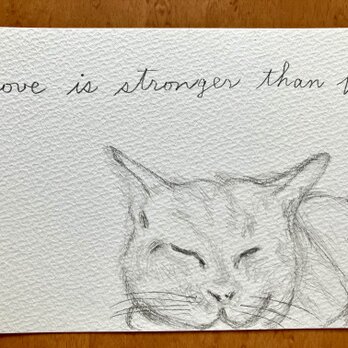 ove is stronger than